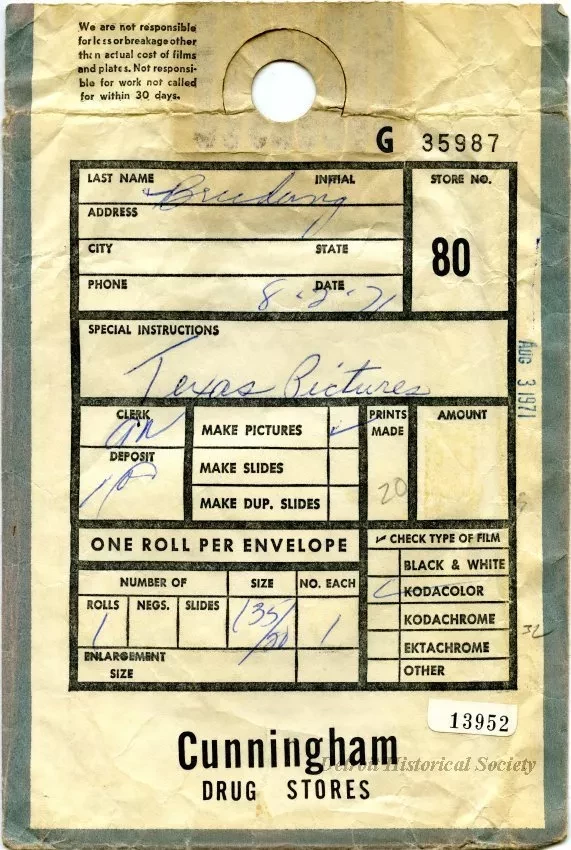 We are not responsible
for loss or breakage other
than actual cost of films
and plates. Not responsi-
ble for work not called
for within 30 days.
G 35987
LAST NAME INITIAL
STORE NO.
ADDRESS
CITY STATE
80
PHONE DATE
8-2-71
SPECIAL INSTRUCTIONS
Texas Pictures
AUG 3 1971
CLERK
MAKE PICTURES
PRINTS
MADE
AMOUNT
DEPOSIT
MAKE SLIDES
20
MAKE DUP. SLIDES
ONE ROLL PER ENVELOPE
CHECK TYPE OF FILM
BLACK & WHITE
NUMBER OF SIZE NO. EACH
KODACOLOR
ROLLS NEGS. SLIDES
1 135/20 1
KODACHROME
32
EKTACHROME
ENLARGEMENT
SIZE
OTHER
13952
Cunningham
DRUG STORES
Detroit Historical Society